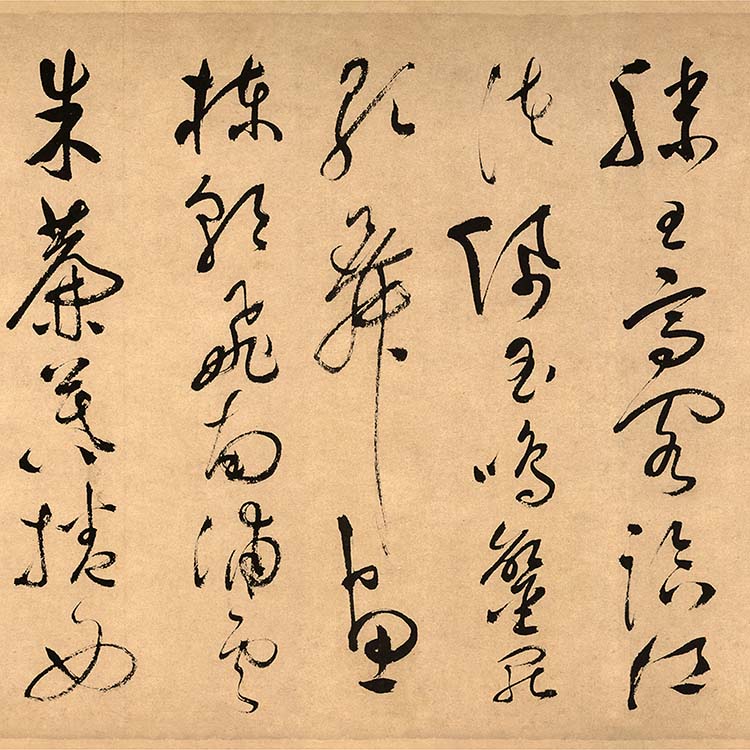 滕王高閣臨江
渚佩玉鳴鑾罷
歌舞畫
棟朝飛南浦雲
朱簾暮捲西